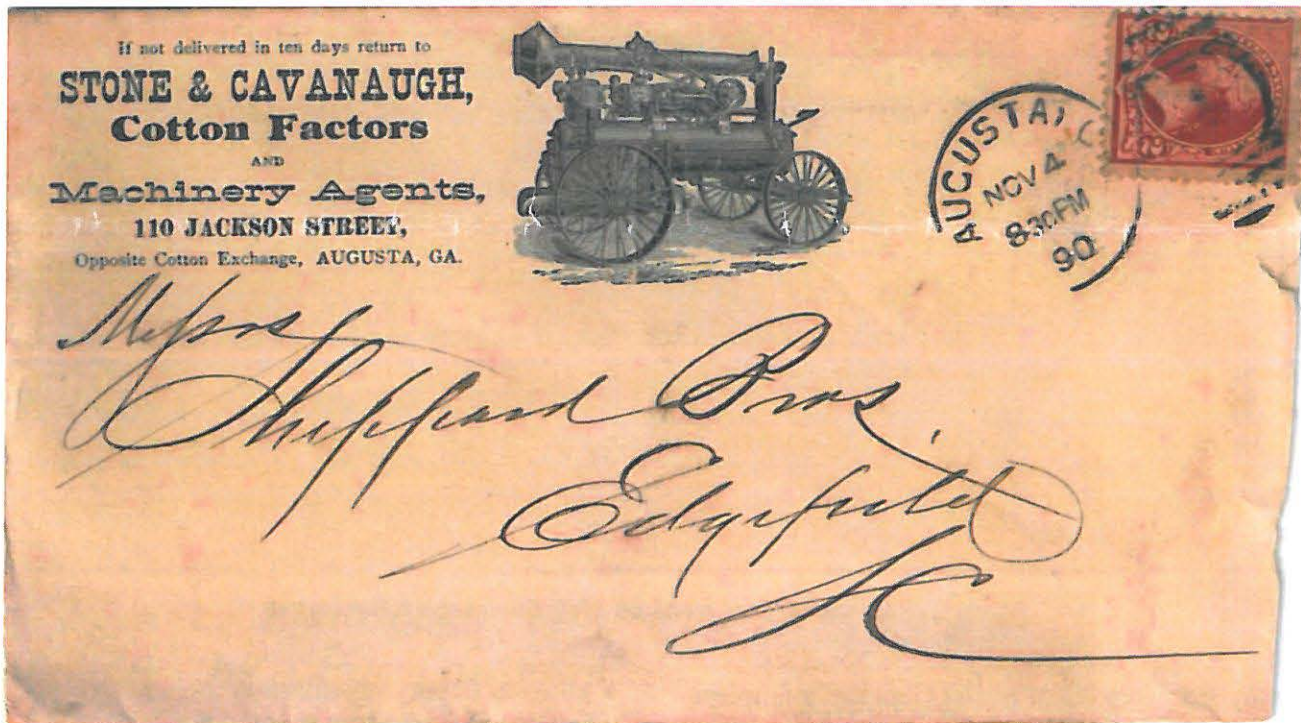 If not delivered in ten days return to
STONE & CAVANAUGH,
Cotton Factors
AND
Machinery Agents,
110 JACKSON STREET,
Opposite Cotton Exchange, AUGUSTA, GA.
AUGUSTA,
NOV 4
830PM
90
Messrs
Sheppard Bros.
Edgefield
S C